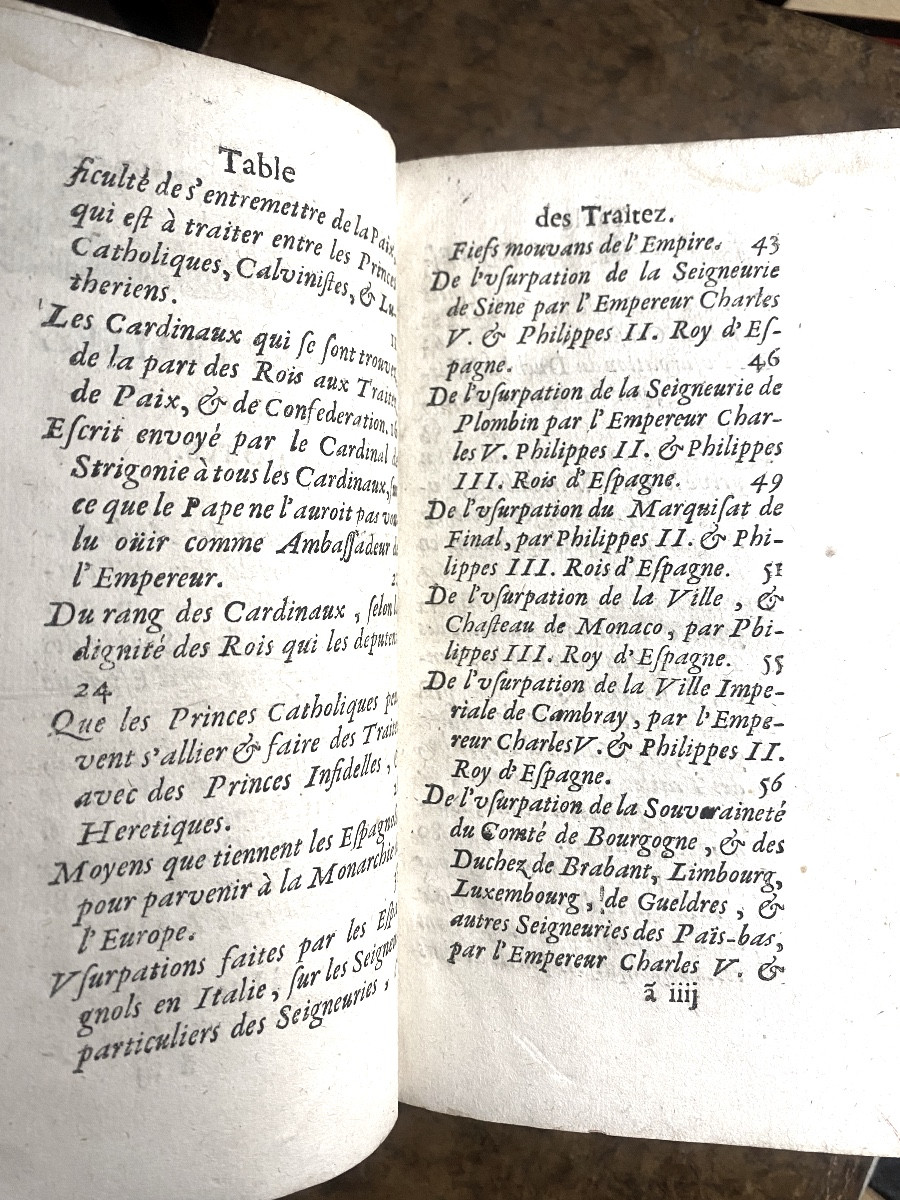 Table
ficulté de s'entremettre de la Paix,
qui eſt à traiter entre les Princes
Catholiques, Calviniſtes, & Lu-
theriens.
Les Cardinaux qui ſe ſont trouvez
de la part des Rois aux Traitez
de Paix, & de Confederation.
Eſcrit envoyé par le Cardinal de
Strigonie à tous les Cardinaux,
ce que le Pape ne l'auroit pas vou
lu oüir comme Ambaſſadeur
l'Empereur.
Du rang des Cardinaux, ſelon la
dignité des Rois qui les deputent
24
Que les Princes Catholiques peu
vent s'allier & faire des Traitez
avec des Princes Infidelles,
Heretiques.
Moyens que tiennent les Eſpagnols
pour parvenir à la Monarchie
l'Europe.
Vſurpations faites par les Eſpa
gnols en Italie, ſur les Seigneurs
particuliers des Seigneuries,
des Traitez.
Fiefs mouvans de l'Empire. 43
De l'vſurpation de la Seigneurie
de Siene par l'Empereur Charles
V. & Philippes II. Roy d'Eſ-
pagne. 46
De l'vſurpation de la Seigneurie de
Plombin par l'Empereur Char-
les V. Philippes II. & Philippes
III. Rois d'Eſpagne. 49
De l'vſurpation du Marquiſat de
Final, par Philippes II. & Phi-
lippes III. Rois d'Eſpagne. 51
De l'vſurpation de la Ville, &
Chaſteau de Monaco, par Phi-
lippes III. Roy d'Eſpagne. 55
De l'vſurpation de la Ville Impe-
riale de Cambray, par l'Empe-
reur Charles V. & Philippes II.
Roy d'Eſpagne. 56
De l'vſurpation de la Souveraineté
du Comté de Bourgogne, & des
Duchez de Brabant, Limbourg,
Luxembourg, de Gueldres, &
autres Seigneuries des Païs-bas,
par l'Empereur Charles V. &
ã iiij